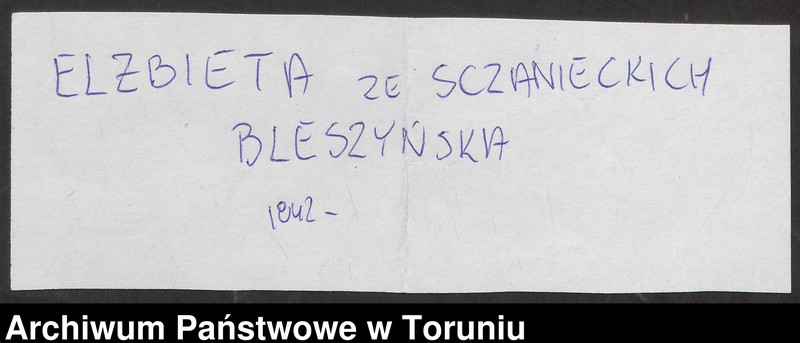 ELZBIETA ZE SCZANIECKICH
BLESZYŃSKA
1842-
Archiwum Państwowe w Toruniu